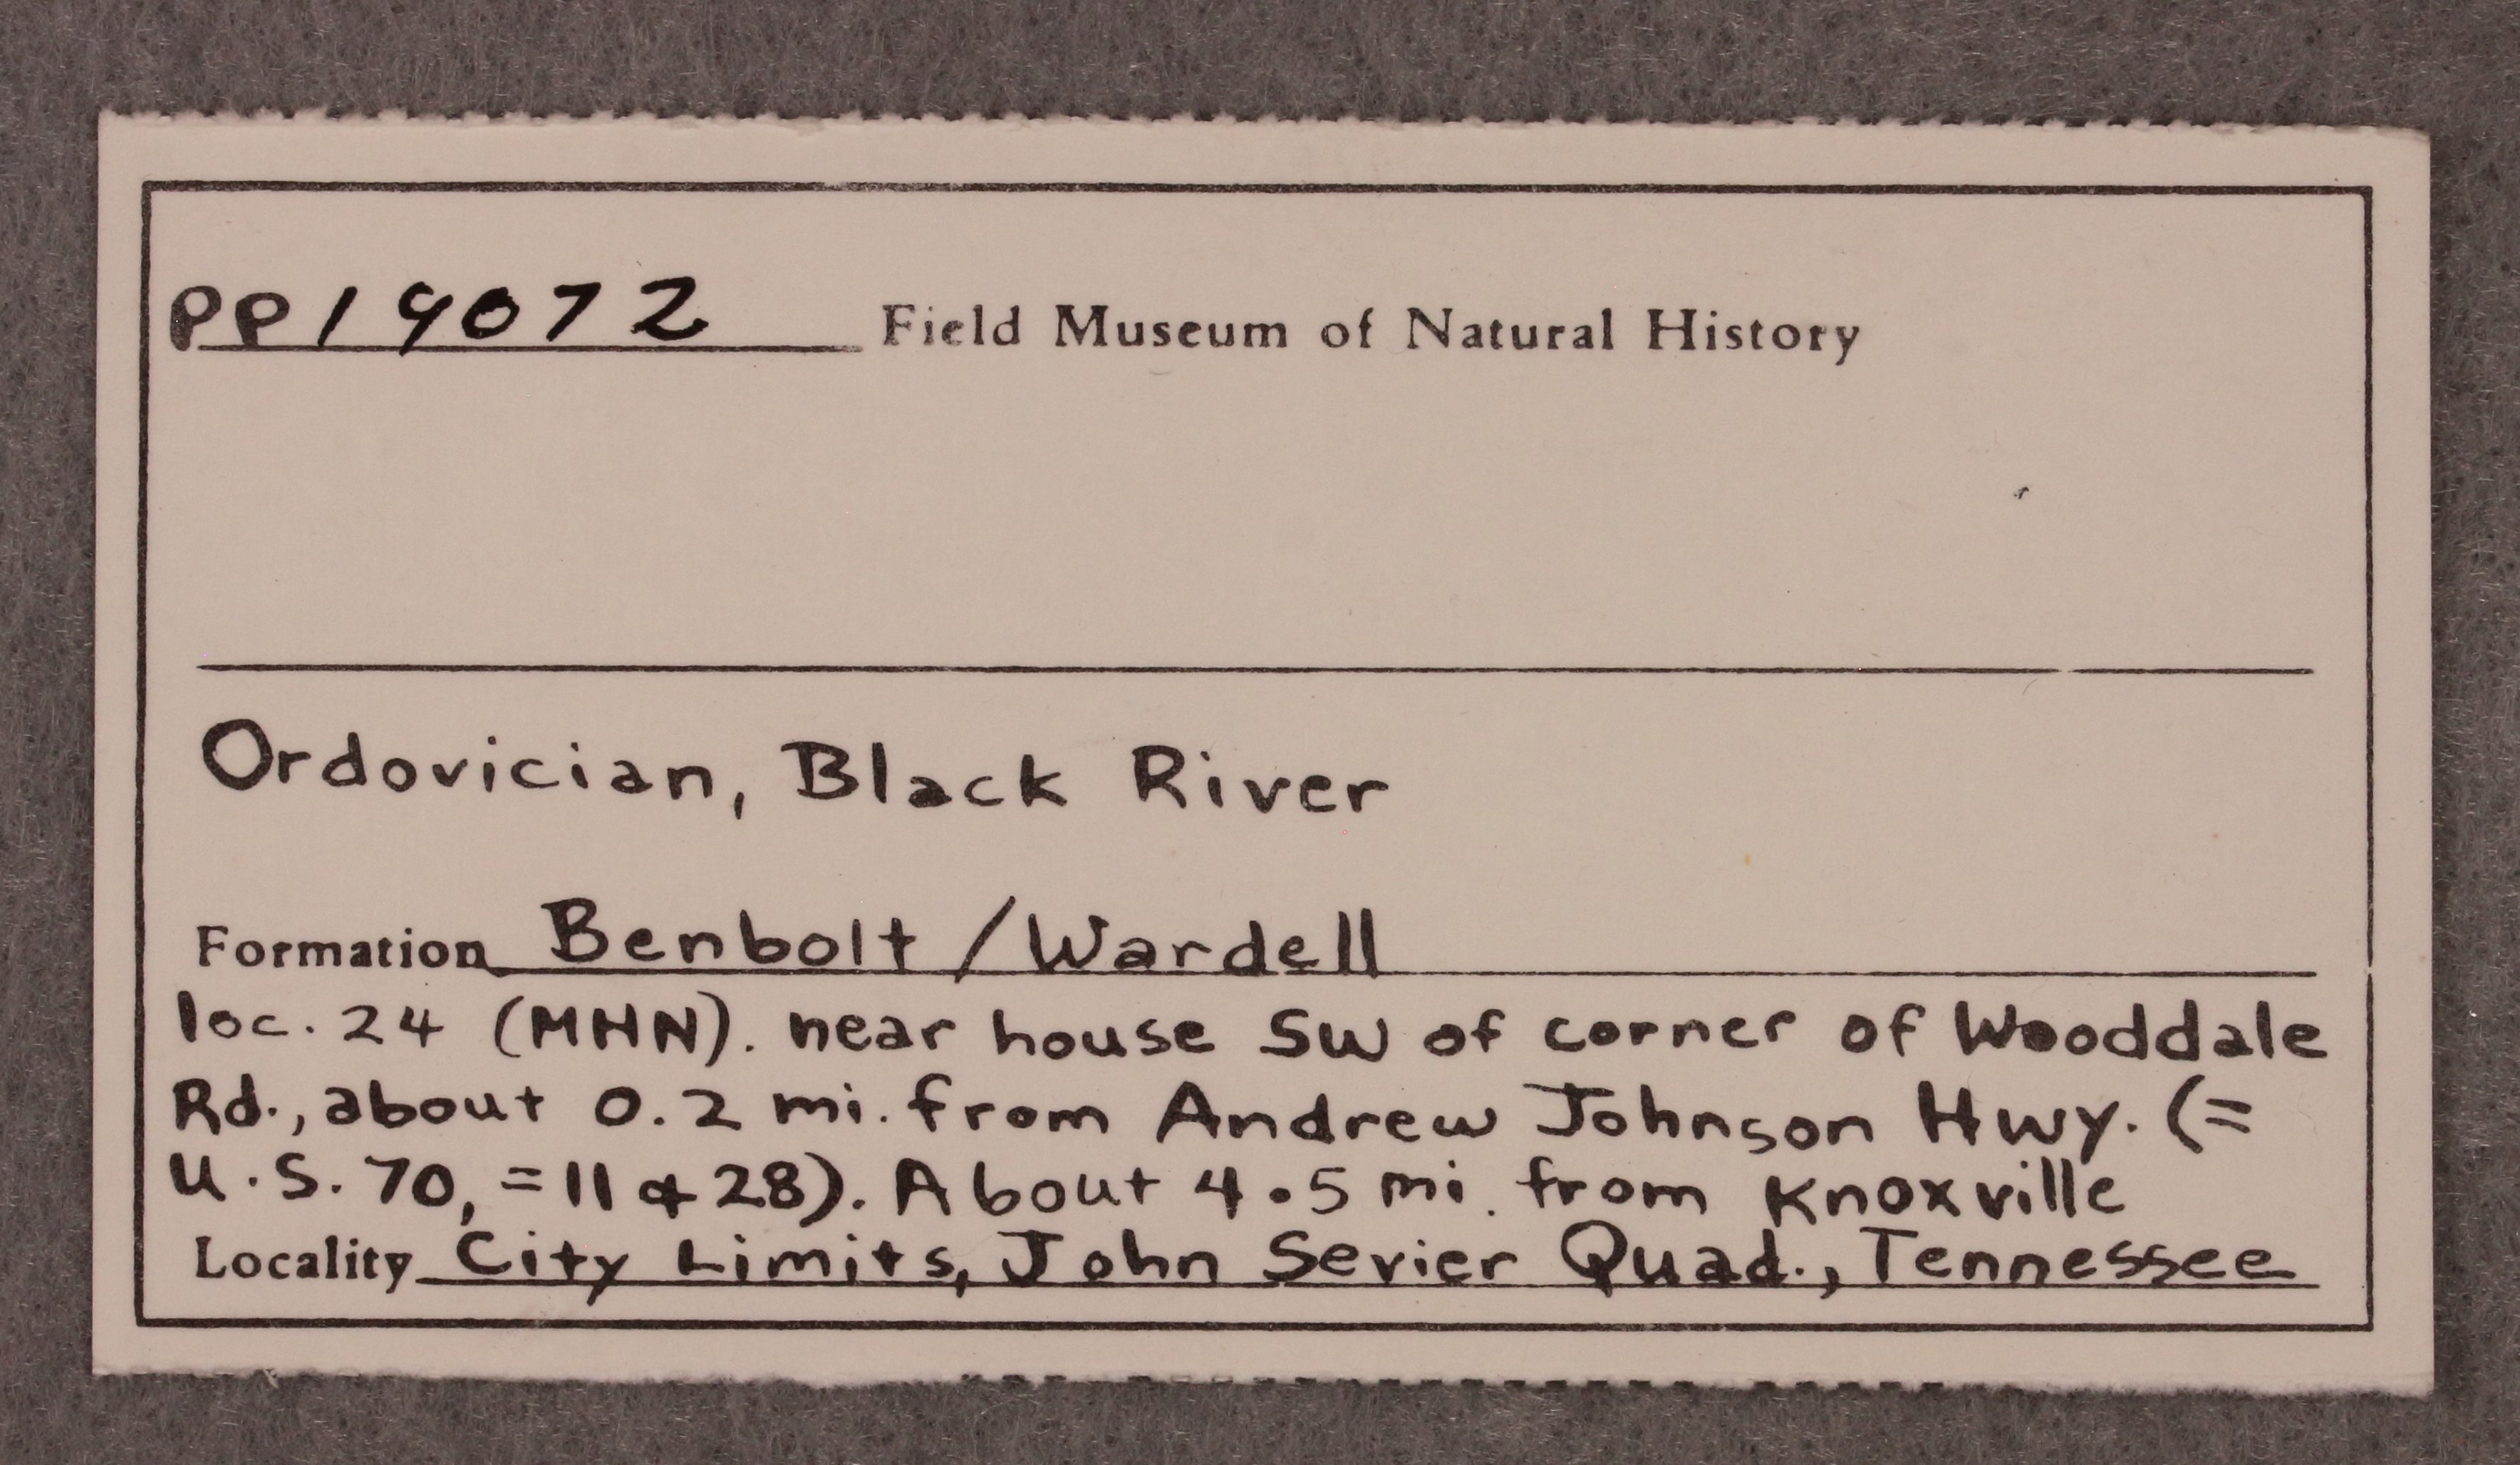 PP19072 Field Museum of Natural History
Ordovician, Black River
Formation Benbolt / Wardell
loc. 24 (MHN). near house SW of corner of Wooddale
Rd., about 0.2 mi. from Andrew Johnson Hwy. (=
U.S. 70, = 11 & 28). About 4.5 mi. from Knoxville
Locality City Limits, John Sevier Quad., Tennessee